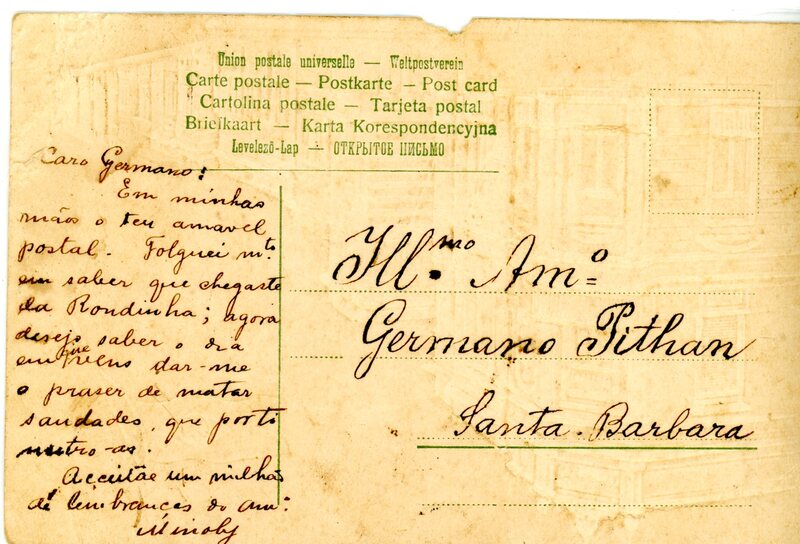 Union postale universelle — Weltpostverein
Carte postale — Postkarte — Post card
Cartolina postale — Tarjeta postal
Briefkaart — Karta Korespondencyjna
Levelező-Lap — ОТКРЫТОЕ ПИСЬМО
Caro Germano:
Em minhas
mãos o teu amavel
postal. Folguei mto
em saber que chegaste
da Rondinha; agora
desejo saber o dia
em que vens dar-me
o praser de matar
saudades, que por ti
nutro-as.
Acceitae um milhão
de lembranças do amo
Ill.mo Amo
Germano Pithan
Santa Barbara